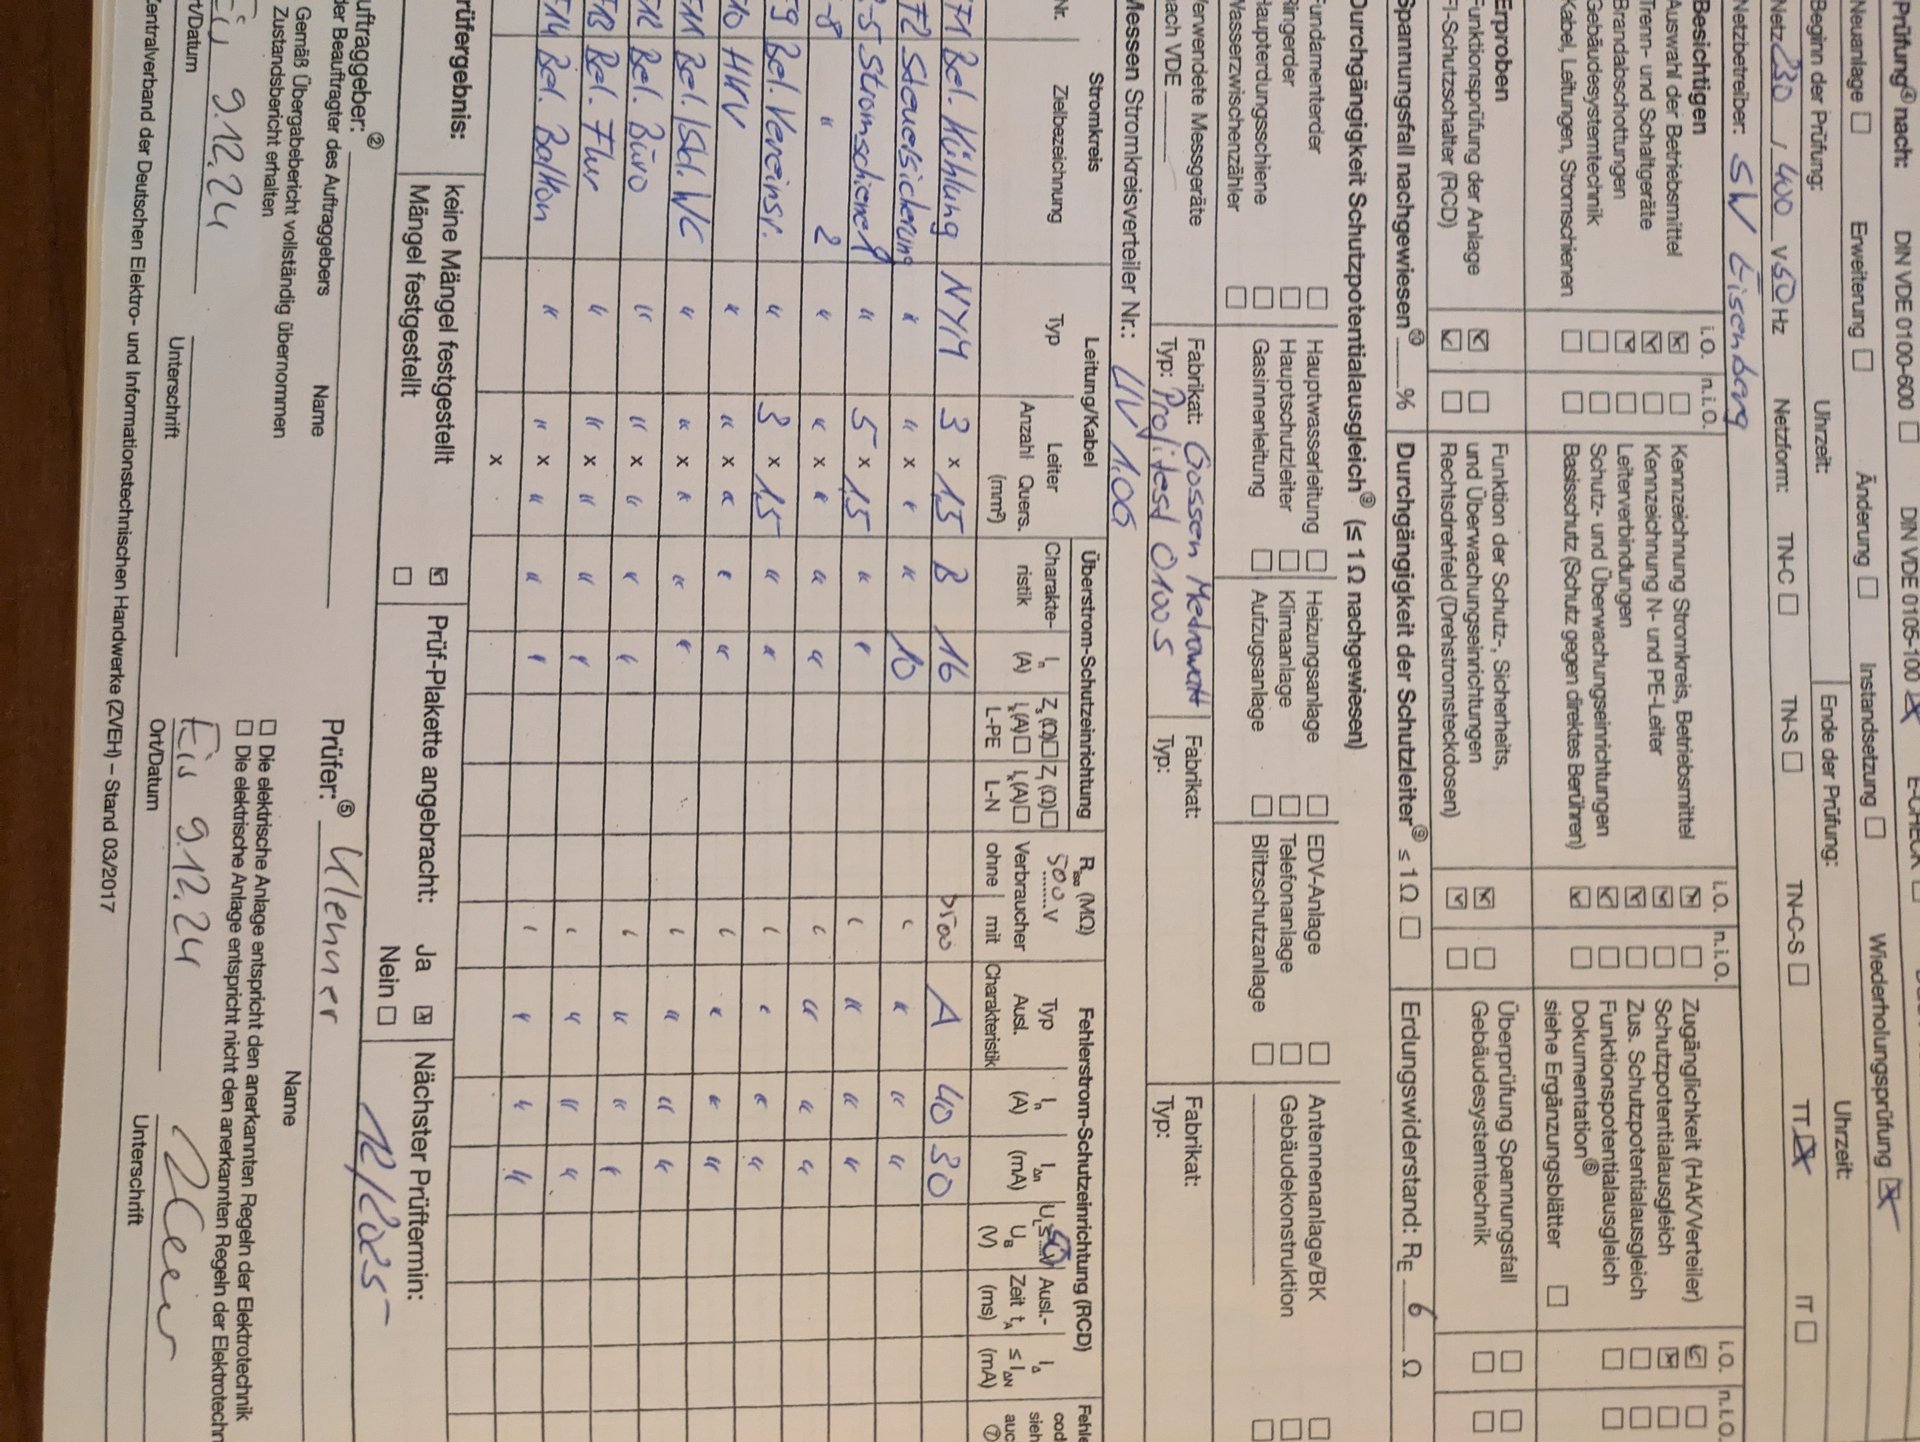 Prüfung④ nach: DIN VDE 0100-600 ☐ DIN VDE 0105-100 ☒ E-CHECK ☐
Neuanlage ☐ Erweiterung ☐ Änderung ☐ Instandsetzung ☐ Wiederholungsprüfung ☒
Beginn der Prüfung: Uhrzeit: Ende der Prüfung: Uhrzeit:
Netz 230 / 400 V 50 Hz Netzform: TN-C ☐ TN-S ☐ TN-C-S ☐ TT ☒ IT ☐
Netzbetreiber: SW Eisenberg
Besichtigen i.O. n.i.O. i.O. n.i.O. i.O. n.i.O.
Auswahl der Betriebsmittel ☒ ☐ Kennzeichnung Stromkreis, Betriebsmittel ☒ ☐ Zugänglichkeit (HAK/Verteiler) ☒ ☐
Trenn- und Schaltgeräte ☒ ☐ Kennzeichnung N- und PE-Leiter ☒ ☐ Schutzpotentialausgleich ☒ ☐
Brandabschottungen ☒ ☐ Leiterverbindungen ☒ ☐ Zus. Schutzpotentialausgleich ☐ ☐
Gebäudesystemtechnik ☐ ☐ Schutz- und Überwachungseinrichtungen ☒ ☐ Funktionspotentialausgleich ☐ ☐
Kabel, Leitungen, Stromschienen ☐ ☐ Basisschutz (Schutz gegen direktes Berühren) ☒ ☐ Dokumentation⑥
siehe Ergänzungsblätter ☐
Erproben Funktion der Schutz-, Sicherheits, Überprüfung Spannungsfall ☐ ☐
Funktionsprüfung der Anlage ☒ ☐ und Überwachungseinrichtungen ☒ ☐ Gebäudesystemtechnik ☐ ☐
FI-Schutzschalter (RCD) ☒ ☐ Rechtsdrehfeld (Drehstromsteckdosen) ☒ ☐
Spannungsfall nachgewiesen ____ % Durchgängigkeit der Schutzleiter⑨ ≤ 1 Ω ☐ Erdungswiderstand: RE 6 Ω
Durchgängigkeit Schutzpotentialausgleich⑨ (≤ 1 Ω nachgewiesen)
Fundamenterder ☐ Hauptwasserleitung ☐ Heizungsanlage ☐ EDV-Anlage ☐ Antennenanlage/BK ☐
Ringerder ☐ Hauptschutzleiter ☐ Klimaanlage ☐ Telefonanlage ☐ Gebäudekonstruktion ☐
Haupterdungsschiene ☐ Gasinnenleitung ☐ Aufzugsanlage ☐ Blitzschutzanlage ☐ ____ ☐
Wasserzwischenzähler ☐
Verwendete Messgeräte Fabrikat: Gossen Metrawatt Fabrikat: Fabrikat:
nach VDE ____ Typ: Profitest 0100 S Typ: Typ:
Messen Stromkreisverteiler Nr.: UV 1.OG
Stromkreis Leitung/Kabel Überstrom-Schutzeinrichtung Riso (MΩ) Fehlerstrom-Schutzeinrichtung (RCD)
Nr. Zielbezeichnung Typ Leiter Anzahl Quers. (mm²) Charakteristik In (A) Zs (Ω)☐ Ik (A)☐ L-PE Zi (Ω)☐ Ik (A)☐ L-N 500 V Verbraucher ohne mit Typ Ausl. Charakteristik In (A) IΔn (mA) UL≤ 50 V UB (V) Ausl.-Zeit tA (ms) IΔ ≤ IΔN (mA)
71 Bel. Kühlung NYY 3 x 1,5 B 16 >500 A 40 30
72 Steuersicherung " " x " " 10 " " "
5 Stromschiene 1 " 5 x 1,5 " " " " "
8 " 2 " " x " " " " " "
9 Bel. Vereinsr. " 3 x 1,5 " " " " "
10 HKV " " x " " " " " "
F11 Bel. WC " " x " " " " " "
F12 Bel. Büro " " x " " " " " "
F13 Bel. Flur " " x " " " " " "
F14 Bel. Balkon " " x " " " " " "
x
Prüfergebnis: keine Mängel festgestellt ☒ Prüf-Plakette angebracht: Ja ☒ Nächster Prüftermin:
Mängel festgestellt ☐ Nein ☐ 12/2025
Auftraggeber:② Prüfer:⑤ Klenner
der Beauftragter des Auftraggebers Name Name
Gemäß Übergabebericht vollständig übernommen ☐ Die elektrische Anlage entspricht den anerkannten Regeln der Elektrotechnik
Zustandsbericht erhalten ☐ Die elektrische Anlage entspricht nicht den anerkannten Regeln der Elektrotechn
Eis 9.12.24 Eis 9.12.24
Ort/Datum Unterschrift Ort/Datum Unterschrift
Zentralverband der Deutschen Elektro- und Informationstechnischen Handwerke (ZVEH) – Stand 03/2017